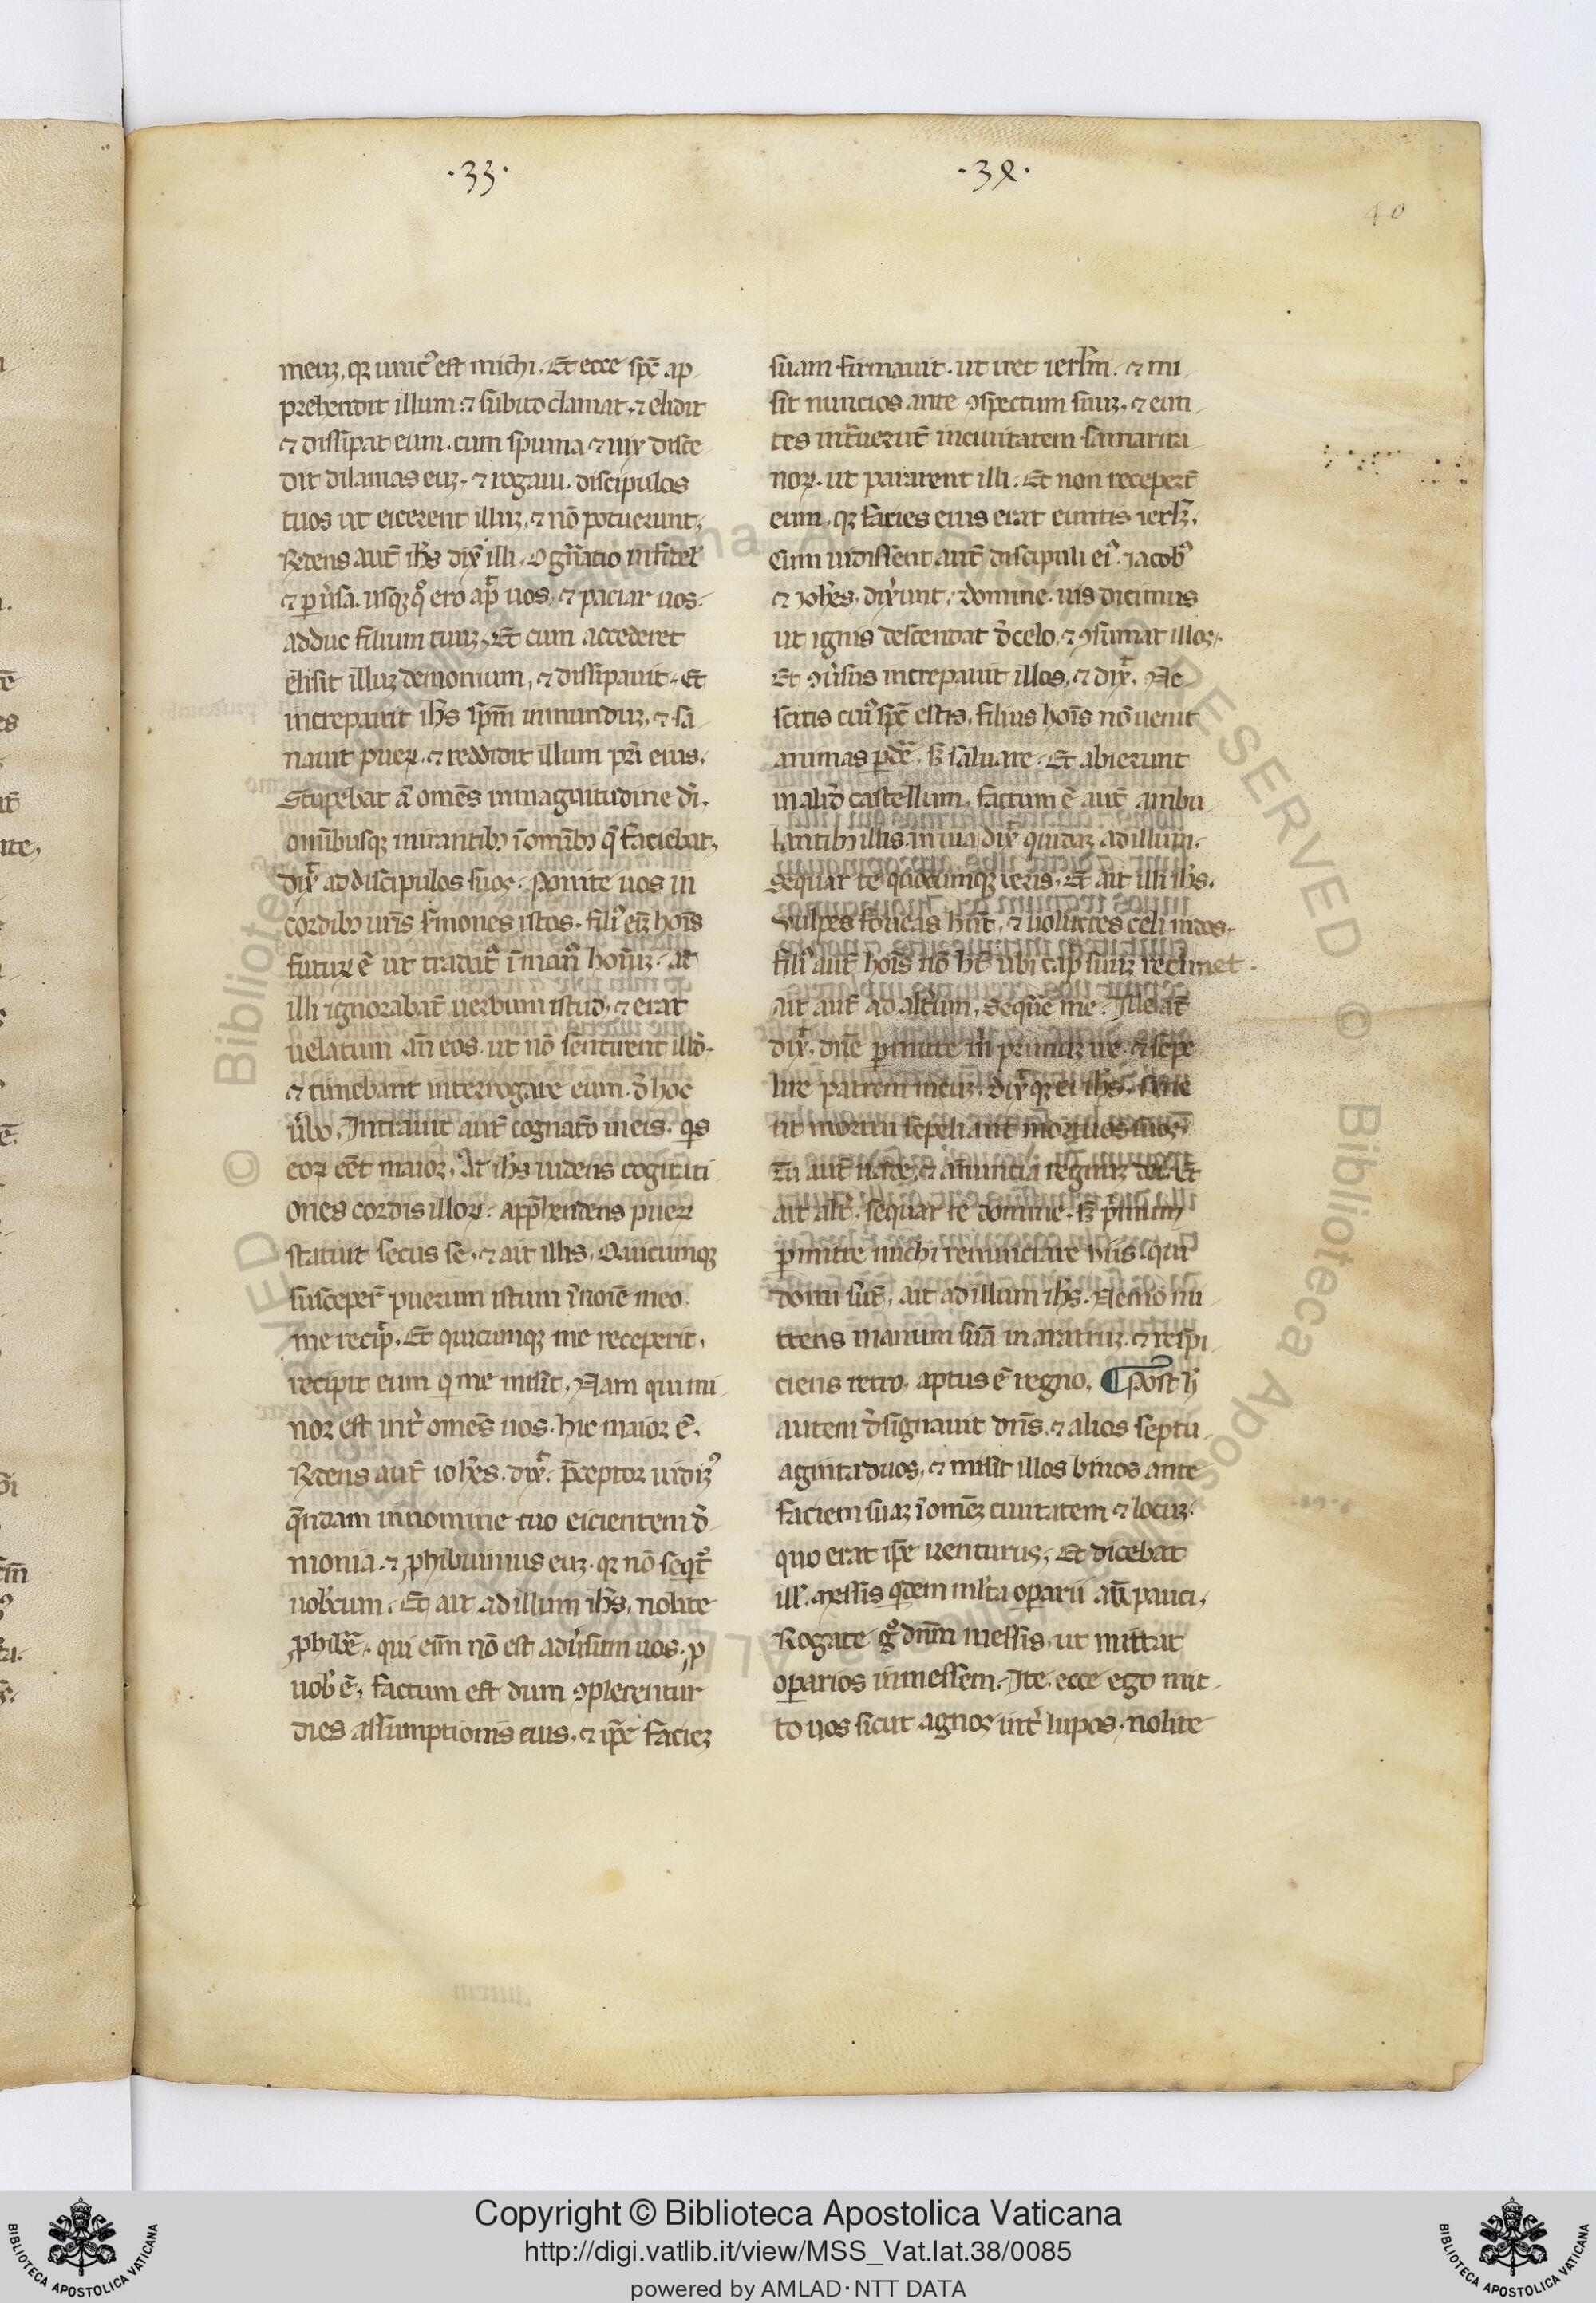 ·33·
·34·
40
meuz, qz unic᾽ est michi. Et ecce sp̄c ap
prehendit illum. ⁊ subito clamat. ⁊ elidit
⁊ dissipat eum. cum spuma ⁊ uix disce
dit dilanias euz. ⁊ rogaui. discipulos
tuos ut eicerent illuz, ⁊ nō potuerunt.
Rn̄dens aut̄ ih̄s dix̄ illi. O gn̄ratio infidel᾽
⁊ ꝑuˀsa. usqz qͦ ero ap̄ uos, ⁊ paciar uos.
adduc filium tuuz. Et cum accederet
elisit illuz demonium, ⁊ dissipauit. Et
increpauit ih̄s sp̄m inmunduz, ⁊ sa
nauit pueꝝ. ⁊ reddidit illum pr̄i eius.
Stupebat aͫ om̄s in magnitudine dī.
omnibusqz mirantibꝫ ī omībꝫ q̄ faciebat,
dix̄ ad discipulos suos. Ponite uos in
cordibꝫ ur̄is sˀmones istos. fili᾽ eiz hoīs
futuꝝ ē ut tradat᾽ ī man᾽ hoīuz. at
illi ignorabāt uerbum istud, ⁊ erat
uelatum an̄ eos. ut nō sentirent illd᾽.
⁊ timebant interrogare eum. d̄ hoc
uˀbo. Intrauit aut̄ cognatō in eis. qͥs
eoꝝ eēt maior. At ih̄s uidens cogitati
ones cordis illoꝝ. app̄hendens pueꝝ
statuit secus se. ⁊ ait illis, Quicumqz
susceper̄ puerum istum ī noīe meo
me recip̄. Et quicumqz me receperit.
recipit eum q me misit. Nam qui mi
nor est intˀ omēs uos. hic maior ē.
Rn̄dens aut̄ ioh̄es. dix̄. p̄ceptor uidim᾽
q̄ndam in nomine tuo eicientem d̄
monia. ⁊ ꝓhibuimus euz. qz nō seqt᾽
nob̄cum. Et ait ad illum ih̄s, nolite
ꝓhibē. qui eīm nō est aduˀsum uos. ꝓ
uob̄ ē, factum est dum ꝯplerentur
dies assumptionis eius. ⁊ ip̄e faciez
suam firmauit. ut iret ierl̄m. ⁊ mi
sit nuncios ante ꝯspectum suuz. ⁊ eun
tes intˀuerūt in ciuitatem samarita
noꝝ. ut pararent illi. Et non receperūt
eum. qz facies eius erat euntis ierl̄z.
Cum uidissent aut̄ discipuli ei᾽. iacob᾽
⁊ ioh̄es, dix̄unt. domine. uis dicimus
ut ignis descendat d̄ celo. ⁊ ꝯsumat illos.
Et ꝯuˀsus increpauit illos, ⁊ dix̄. Ne
scitis cui᾽ sp̄c estis, filius hoīs nō uenit
animas ꝑdē. sꝫ saluare. Et abierunt
in aliᵈ castellum, factum ē aut̄ ambu
lantibꝫ illis. in uia dix̄ quidaz ad illum.
Sequar te quocumqz ieris. Et ait illi ih̄s.
Vulpes foueas hn̄t, ⁊ uolucres celi nidos.
fili᾽ aut̄ hoīs nō h̄t ubi cap᾽ suuz reclinet.
ait aut̄ ad altˀum, Sequˀe me. Ille at̄
dix̄. dn̄e ꝑmitte m̄ primuz ire. ⁊ sepe
lire patrem meuz. dix̄ qz ei ih̄s. sine
ut mortui sepeliant mortuos suos.
Tu aut̄ uade, ⁊ anuncia regnuz dei. Et
ait altˀ, sequar te domine. sꝫ p̄mum
ꝑmitte michi renunciare hiis. qui
domi sūt, ait ad illum ih̄s. Nemo mi
ttens manum suā in aratruz. ⁊ respi
ciens retro. aptus ē regno. ¶ Post h̄
autem d̄signauit dn̄s. ⁊ alios septu
aginta duos, ⁊ misit illos binos ante
faciem suaz ī omēz ciuitatem ⁊ locuz.
quo erat ip̄e uenturus. Et dicebat
ill᾽. Messis qͥdem ml̄ta oꝑarii aūt pauci.
Rogate gͦ dn̄m messis. ut mittat
oꝑarios in messem. Ite. ecce ego mit
to uos sicut agnos intˀ lupos. nolite
Copyright © Biblioteca Apostolica Vaticana
http://digi.vatlib.it/view/MSS_Vat.lat.38/0085
powered by AMLAD·NTT DATA
BIBLIOTECA APOSTOLICA VATICANA
BIBLIOTECA APOSTOLICA VATICANA